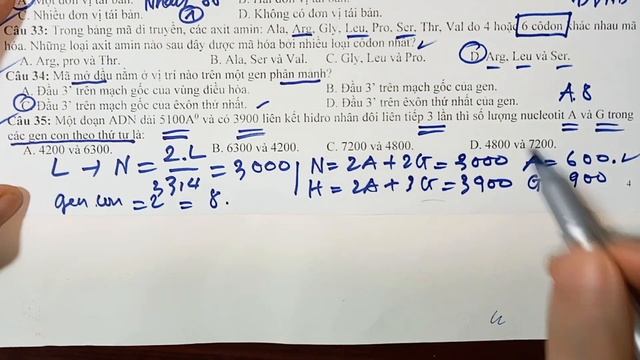 D. Không có đơn vị tái bản.
Câu 33: Trong bảng mã di truyền, các axit amin: Ala, Arg, Gly, Leu, Pro, Ser, Thr, Val do 4 hoặc 6 côdon khác nhau mã
hóa. Những loại axit amin nào sau đây được mã hóa bởi nhiều loại côdon nhất?
A. Arg, pro và Thr. B. Ala, Ser và Val. C. Gly, Leu và Pro. D. Arg, Leu và Ser.
Câu 34: Mã mở đầu nằm ở vị trí nào trên một gen phân mảnh?
A. Đầu 3' trên mạch gốc của vùng điều hòa. B. Đầu 3' trên mạch gốc của gen.
C. Đầu 3' trên mạch gốc của êxôn thứ nhất. D. Đầu 3' trên êxôn thứ nhất của gen.
A.8
Câu 35: Một đoạn ADN dài 5100A⁰ và có 3900 liên kết hidro nhân đôi liên tiếp 3 lần thì số lượng nucleotit A và G trong
các gen con theo thứ tự là:
A. 4200 và 6300. B. 6300 và 4200. C. 7200 và 4800. D. 4800 và 7200.
L → N = 2.L / 3,4 = 3000 N = 2A + 2G = 3000 A = 600.
gen con = 2³ = 8. H = 2A + 3G = 3900 G 900
4